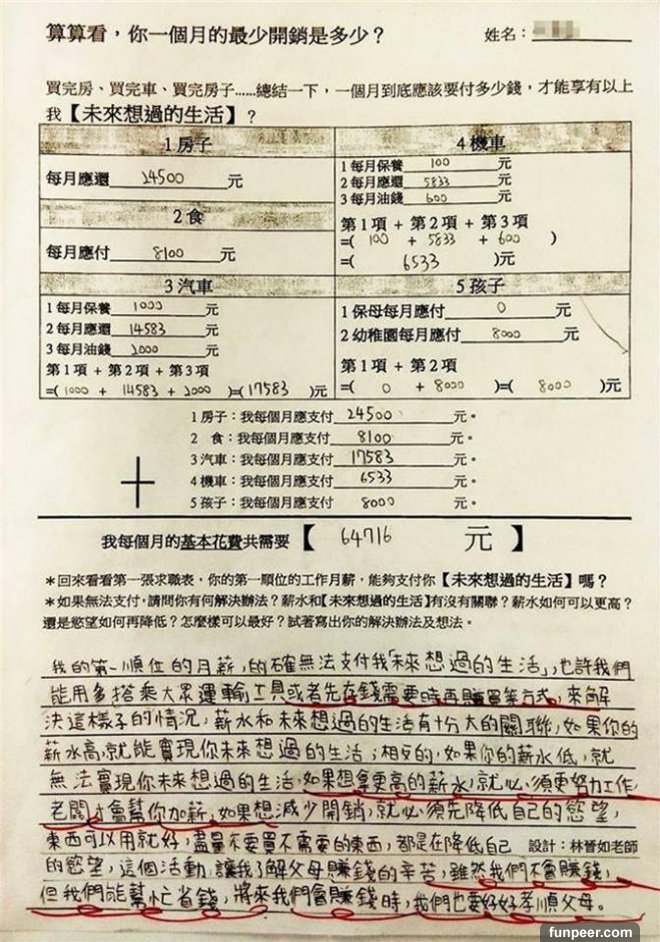 算算看，你一個月的最少開銷是多少？ 姓名：
買完房、買完車、買完房子……總結一下，一個月到底應該要付多少錢，才能享有以上
我【未來想過的生活】？
1 房子
每月應還 24500 元
2 食
每月應付 8100 元
3 汽車
1 每月保養 1000 元
2 每月應還 14583 元
3 每月油錢 2000 元
第 1 項 + 第 2 項 + 第 3 項
=( 1000 + 14583 + 2000 )=( 17583 )元
4 機車
1 每月保養 100 元
2 每月應還 5833 元
3 每月油錢 600 元
第 1 項 + 第 2 項 + 第 3 項
=( 100 + 5833 + 600 )
=( 6533 )元
5 孩子
1 保母每月應付 0 元
2 幼稚園每月應付 8000 元
第 1 項 + 第 2 項
=( 0 + 8000 )=( 8000 )元
1 房子：我每個月應支付 24500 元。
2 食：我每個月應支付 8100 元。
3 汽車：我每個月應支付 17583 元。
4 機車：我每個月應支付 6533 元。
5 孩子：我每個月應支付 8000 元。
+
我每個月的基本花費共需要【 64716 元】
*回來看看第一張求職表，你的第一順位的工作月薪，能夠支付你【未來想過的生活】嗎？
*如果無法支付，請問你有何解決辦法？薪水和【未來想過的生活】有沒有關聯？薪水如何可以更高？
還是慾望如何再降低？怎麼樣可以最好？試著寫出你的解決辦法及想法。
我的第一順位的月薪，的確無法支付我「未來想過的生活」，也許我們
能用多搭乘大眾運輸工具或者先存錢需要時再購買等方式，來解
決這樣子的情況，薪水和未來想過的生活有十分大的關聯，如果你的
薪水高，就能實現你未來想過的生活；相反的，如果你的薪水低，就
無法實現你未來想過的生活，如果想拿更高的薪水，就必須更努力工作，
老闆才會幫你加薪，如果想減少開銷，就必須先降低自己的慾望，
東西可以用就好，盡量不要買不需要的東西，都是在降低自己 設計：林晉如老師
的慾望，這個活動，讓我了解父母賺錢的辛苦，雖然我們不會賺錢，
但我們能幫忙省錢，將來我們會賺錢時，我們也要好好孝順父母。
funpeer.com